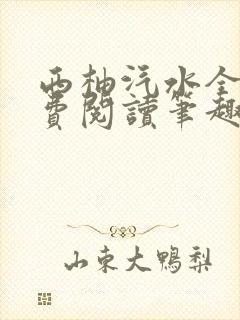 西柚汽水全
費閱讀筆趣
山東大鴨梨